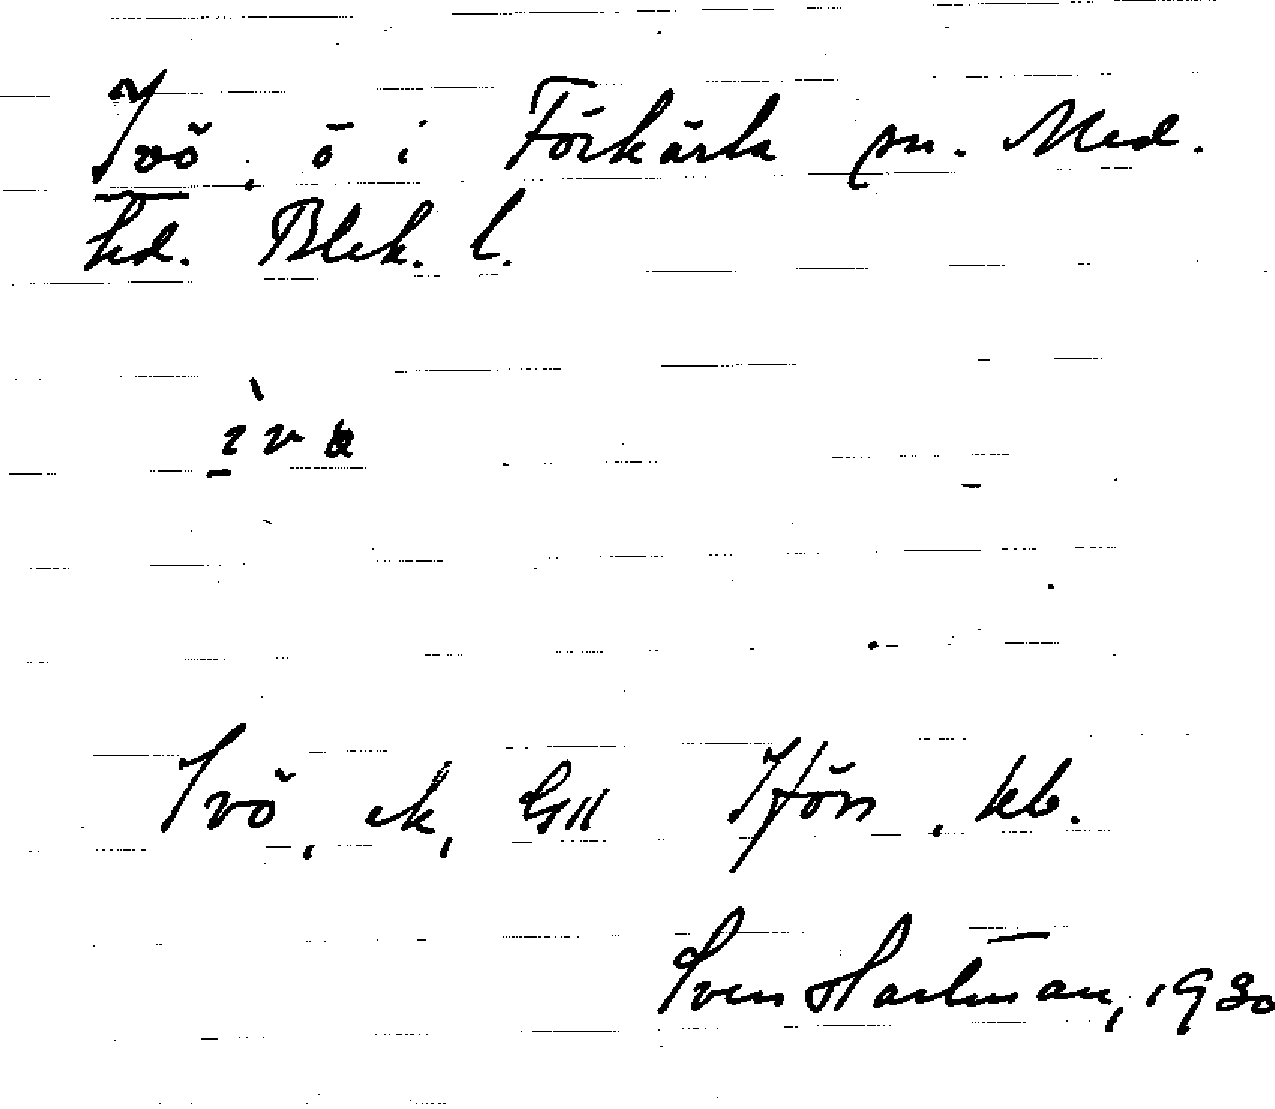 Ivö, ö i Förkärla sn. Med.
hd. Blek. l.
Ivö, ek, GK Ifön, kb.
Sven Hartman, 1930